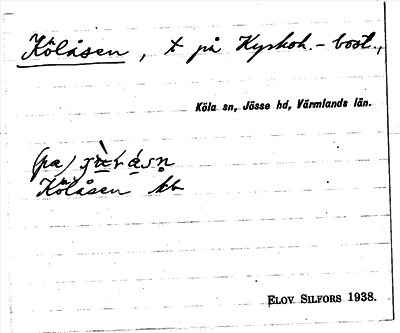 Kölåsen, t på Kyrkoh.-bost.,
Köla sn, Jösse hd, Värmlands län.
(pa)
Kölåsen kb
ELOV SILFORS 1938.